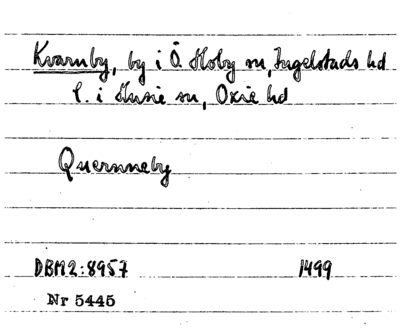 Kvarnby, by i Ö. Hoby sn, Ingelstads hd
l. i Husie sn, Oxie hd
Quernneby
DBM2:8957 1499
Nr 5445